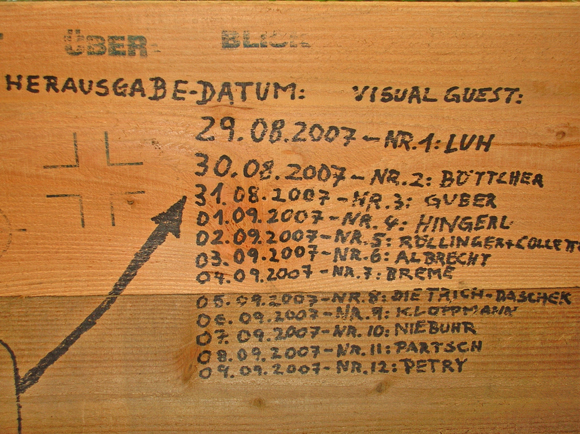 ÜBER BLICK
HERAUSGABE-DATUM: VISUAL GUEST:
29.08.2007-NR.1: LUH
30.08.2007-NR.2: BÖTTCHER
31.08.2007-NR.3: GUBER
01.09.2007-NR.4: HINGERL
02.09.2007-NR.5: RÖLLINGER+COLLETT
03.09.2007-NR.6: ALBRECHT
04.09.2007-NR.7: BREME
05.09.2007-NR.8: DIETRICH-DASCHEK
06.09.2007-NR.9: KLOPPMANN
07.09.2007-NR.10: NIEBUHR
08.09.2007-NR.11: PARTSCH
09.09.2007-NR.12: PETRY